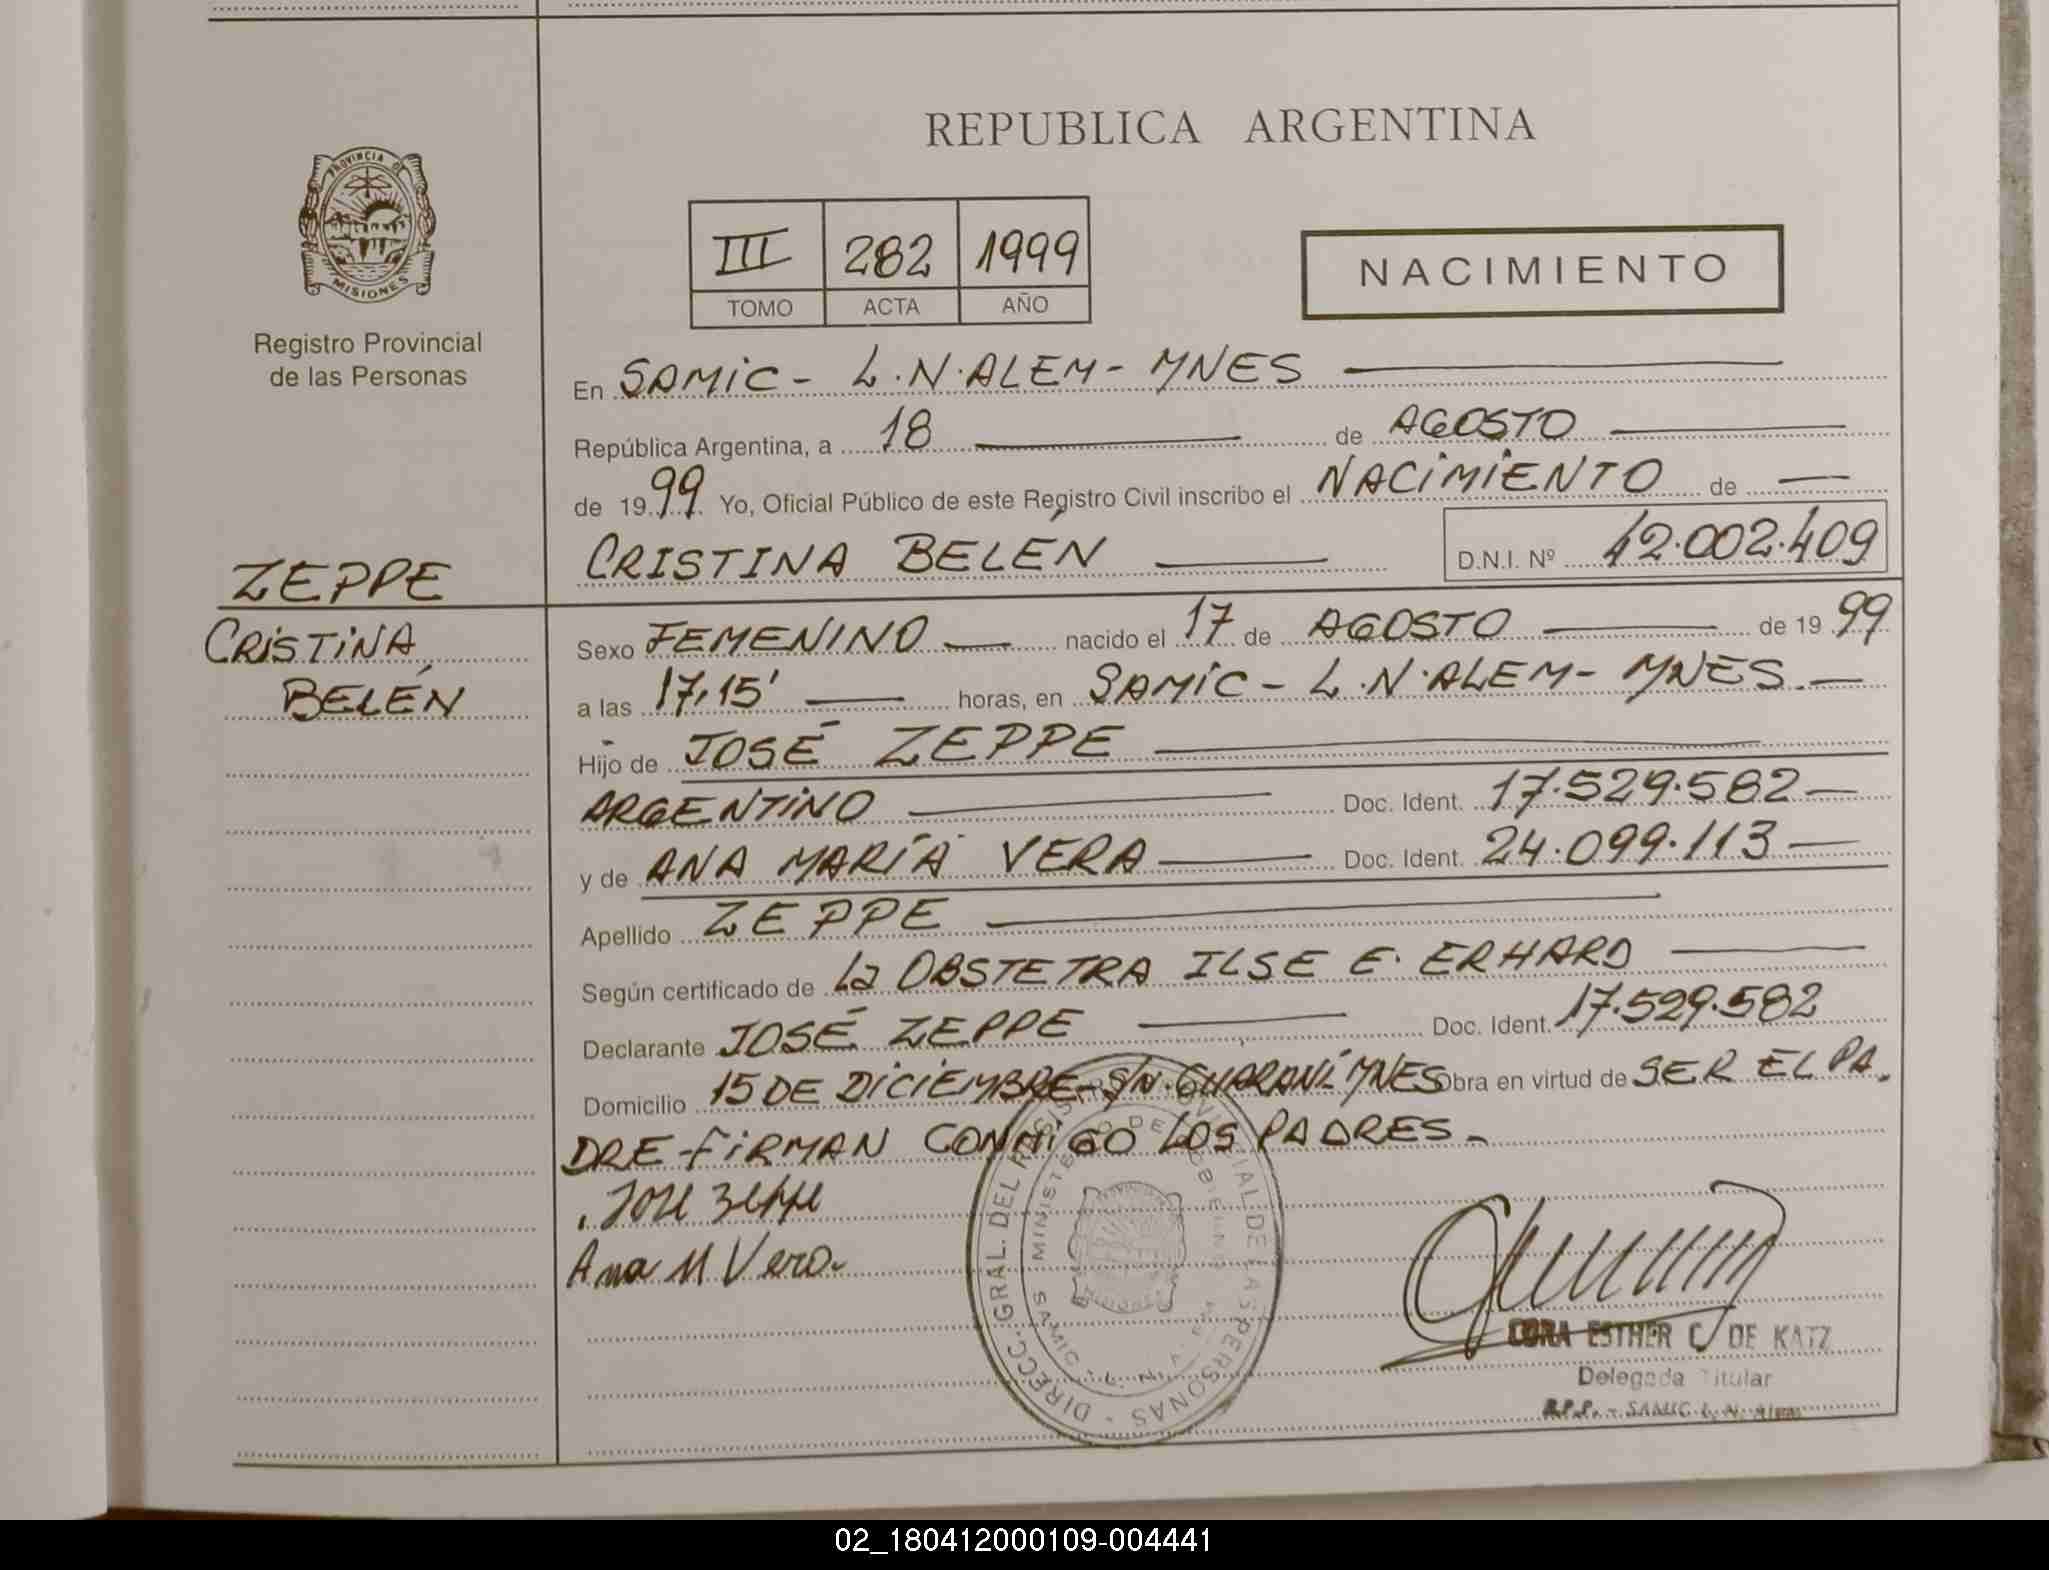 REPUBLICA ARGENTINA
PROVINCIA DE
MISIONES
Registro Provincial
de las Personas
III 282 1999
TOMO ACTA AÑO
NACIMIENTO
En SAMIC - L.N.ALEM - MNES
República Argentina, a 18 de AGOSTO
de 1999 Yo, Oficial Público de este Registro Civil inscribo el NACIMIENTO de
CRISTINA BELÉN D.N.I. Nº 42.002.409
ZEPPE
CRISTINA
BELÉN
Sexo FEMENINO nacido el 17 de AGOSTO de 1999
a las 17,15' horas, en SAMIC - L.N.ALEM - MNES.
Hijo de JOSÉ ZEPPE
ARGENTINO Doc. Ident. 17.529.582
y de ANA MARÍA VERA Doc. Ident. 24.099.113
Apellido ZEPPE
Según certificado de La OBSTETRA ILSE E. ERHARD
Declarante JOSÉ ZEPPE Doc. Ident. 17.529.582
Domicilio 15 DE DICIEMBRE - S/N. GUARANÍ MNES Obra en virtud de SER EL PA.
DRE - FIRMAN CONMIGO LOS PADRES.
José Zeppe
Ana M Vera.
DIRECC. GRAL. DEL REGISTRO PROVINCIAL DE LAS PERSONAS
MINISTERIO DE GOBIERNO
MISIONES
SAMIC L. N.
CORA ESTHER C. DE KATZ
Delegada Titular
R.P.P. - SAMIC L. N. Alem
02_180412000109-004441